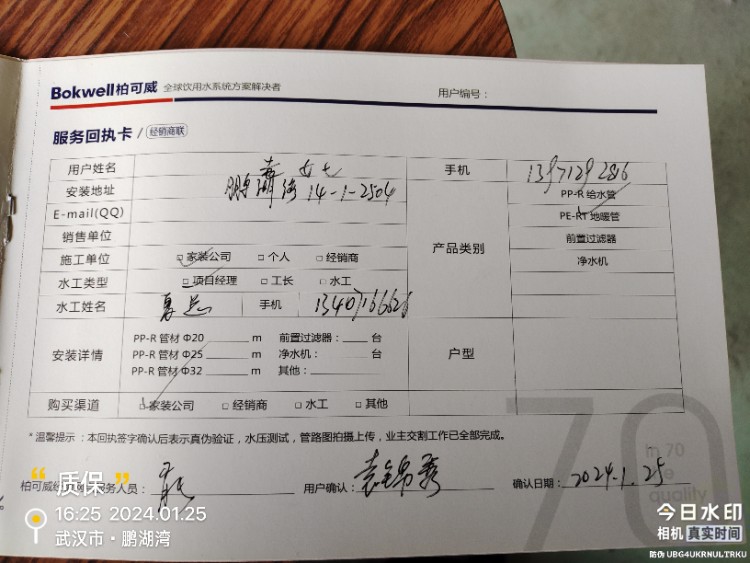 Bokwell柏可威 全球饮用水系统方案解决者 用户编号：
服务回执卡 / 经销商联
用户姓名 袁女士 手机 13971292816
安装地址 鹏湖湾 14-1-2504 PP-R 给水管
E-mail(QQ) PE-RT 地暖管
销售单位 产品类别 前置过滤器
施工单位 □ 家装公司 □ 个人 □ 经销商 净水机
水工类型 □ 项目经理 □ 工长 □ 水工
水工姓名 手机 13407166626
安装详情 PP-R 管材 Φ20 ____ m 前置过滤器：____ 台 户型
PP-R 管材 Φ25 ____ m 净水机： ____ 台
PP-R 管材 Φ32 ____ m 其他：____
购买渠道 □ 家装公司 □ 经销商 □ 水工 □ 其他
* 温馨提示：本回执签字确认后表示真伪验证，水压测试，管路图拍摄上传，业主交割工作已全部完成。
70
in 70
quality
柏可威 服务人员： 用户确认：袁锦秀 确认日期：2024.1.25
“质保”
16:25 2024.01.25
武汉市·鹏湖湾
今日水印
相机 真实时间
防伪 UBG4UKRNULTRKU